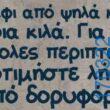 φι από ψηλά
ρια κιλά. Για
ολες περιπ
οτιμήστε λ
πό δορυφο